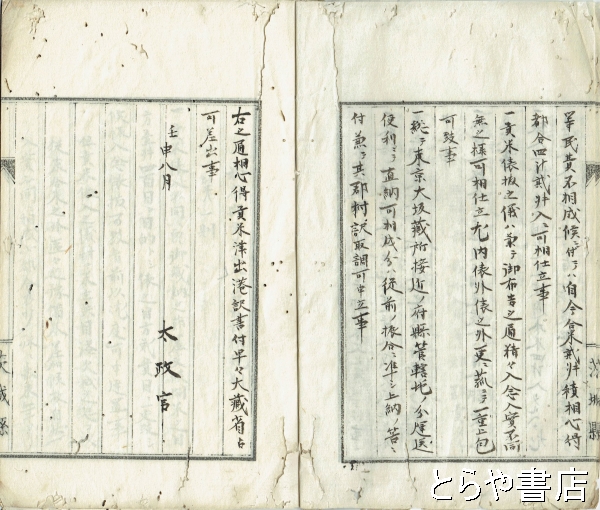 等民費不相成候ニ付テハ自今合米貳升積相心得
都合四斗貳升入ニ可相仕立事
一貢米俵拵之儀ハ兼テ御布告之通精々入念入實不同
無之様可相仕立尤内俵外俵之外更ニ菰ニテ一重上包
可致事
一総テ東京大坂藏所接近ノ府縣管轄地ノ分運送
便利ニテ直納可相成分ハ従前ノ振合ニ準シ上納ノ筈ニ
付兼テ其郡村訳取調可申立事
茨城縣
右之通相心得貢米津出港訳書付早々大藏省江
可差出事
壬申八月
太政官
茨城縣
とらや書店